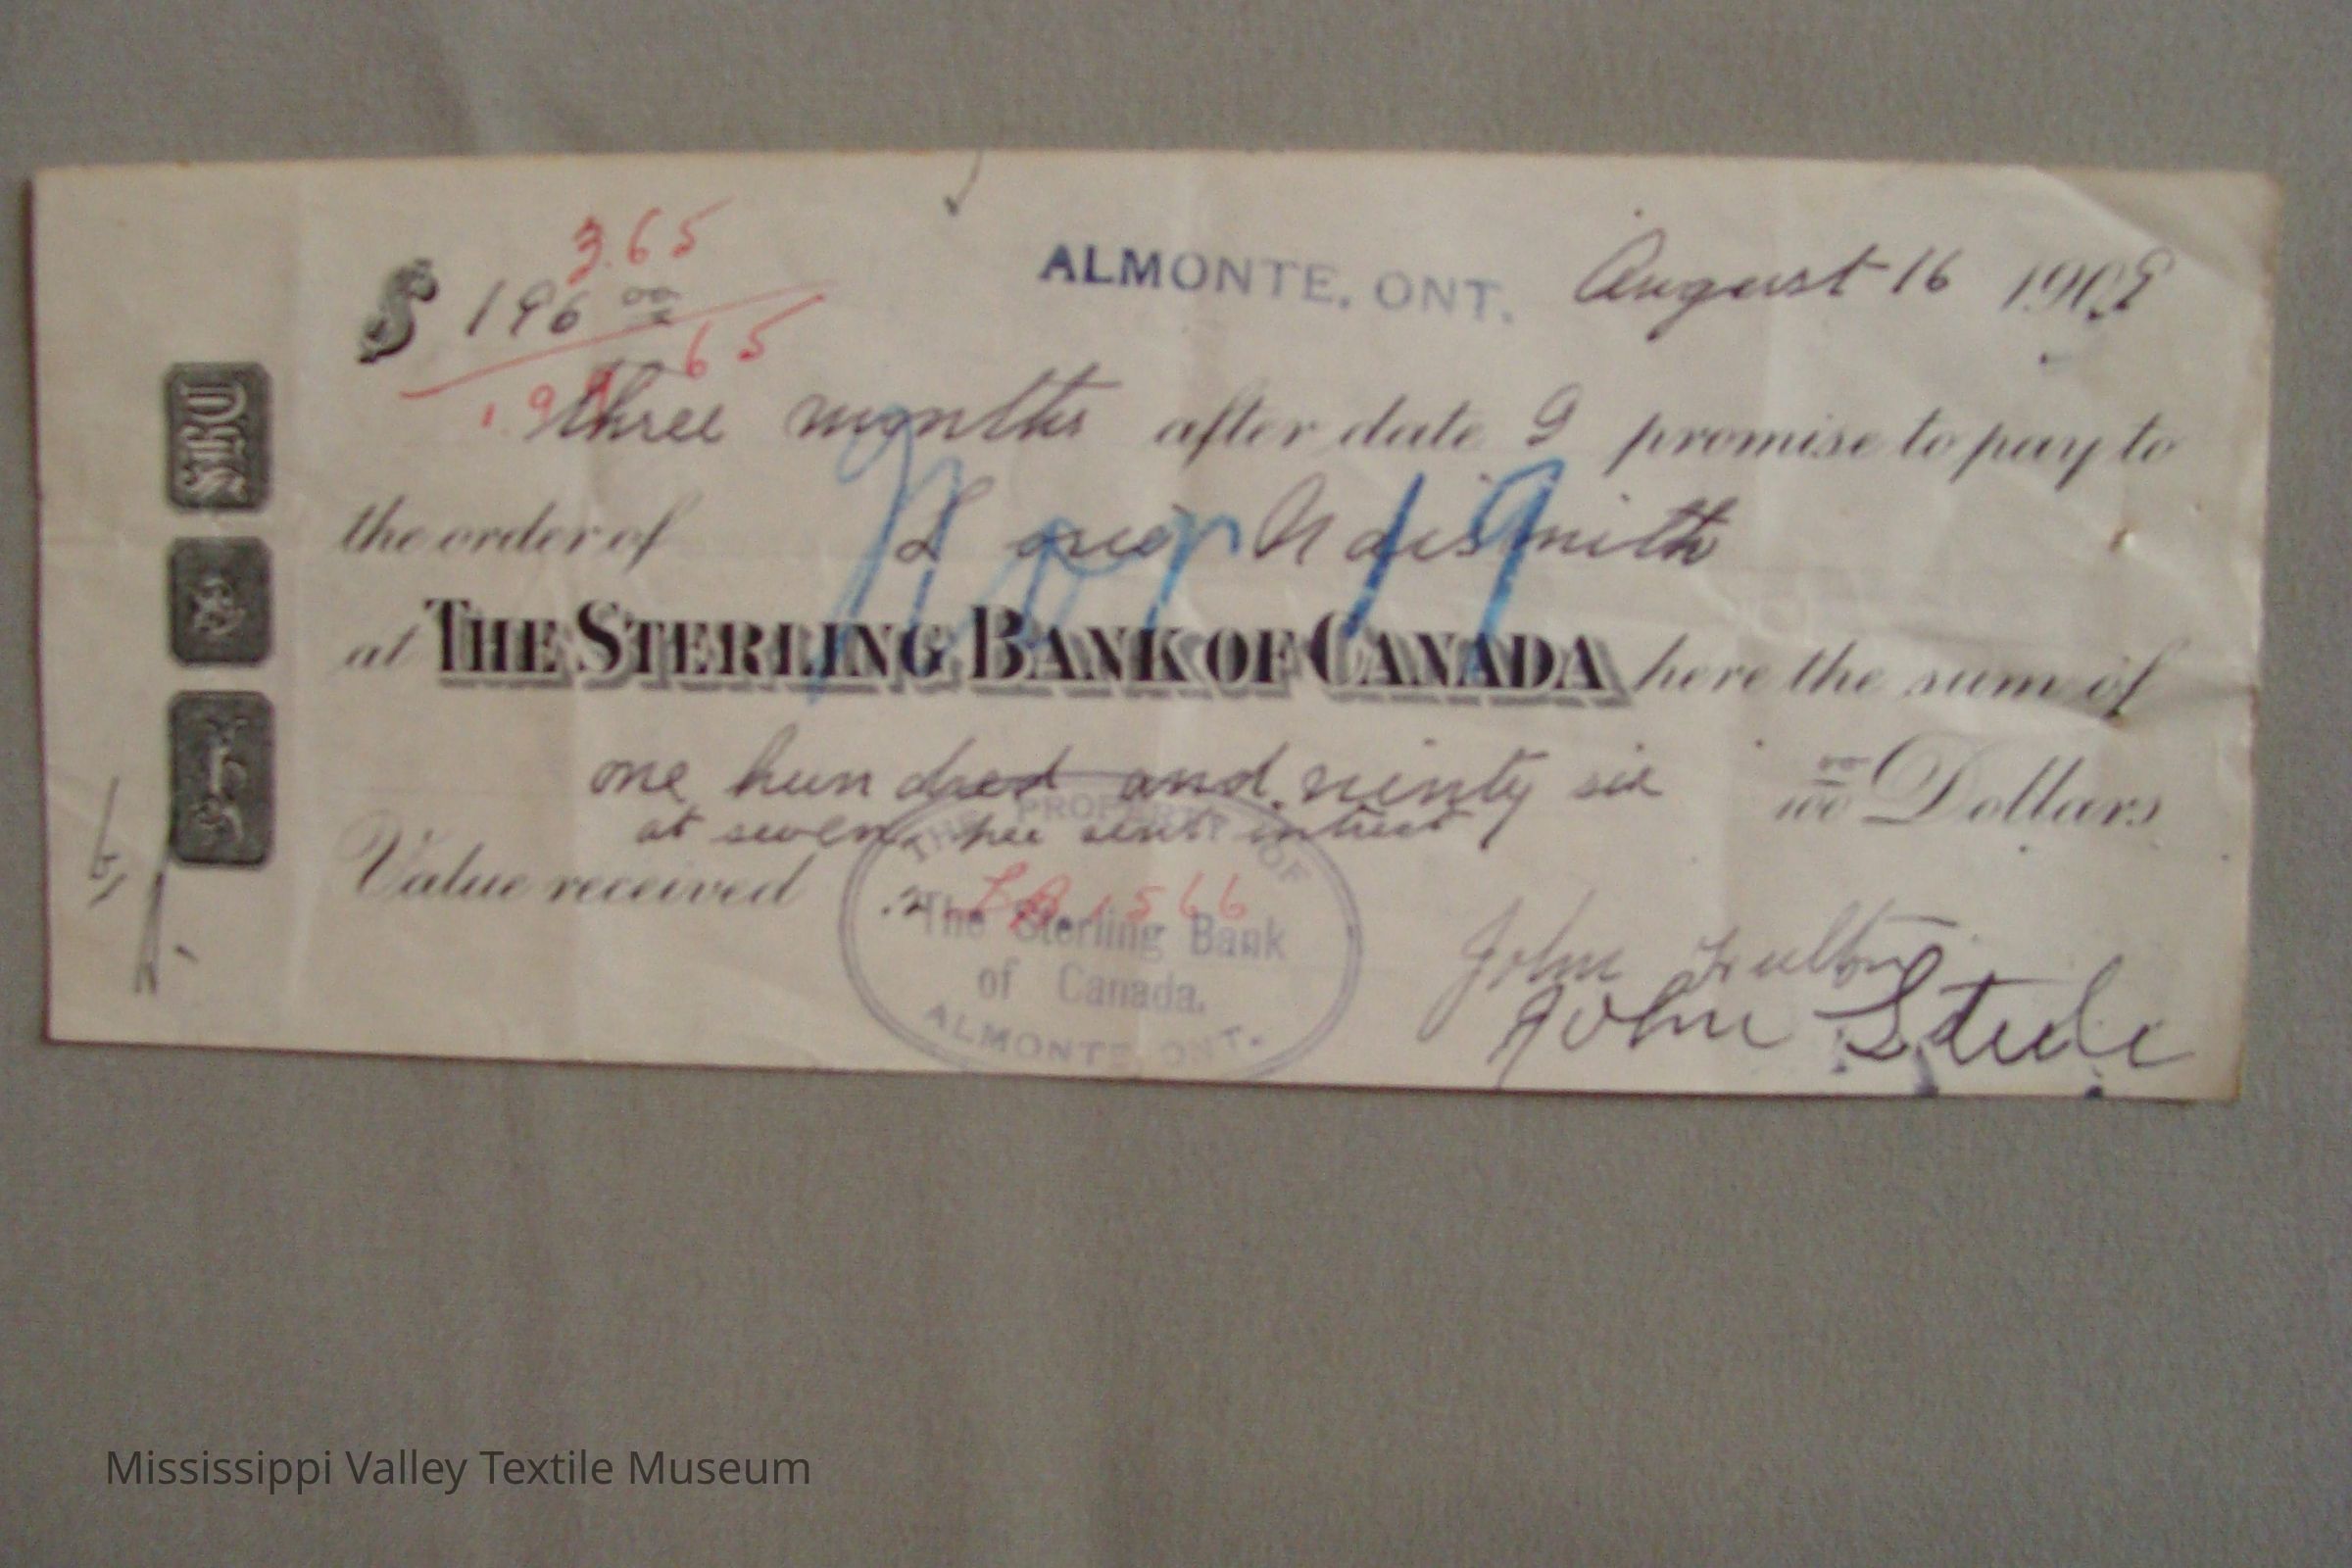 3.65
$ 196 00
ALMONTE, ONT. August 16 1909
65
three months after date I promise to pay to
the order of Naismith
Nov 19
at THE STERLING BANK OF CANADA here the sum of
one hundred and ninety six 00/100 Dollars
at seven per sent intrest
Value received
THE PROPERTY OF
The Sterling Bank
of Canada.
ALMONTE, ONT.
1566
John Fulton
John Steele
Mississippi Valley Textile Museum